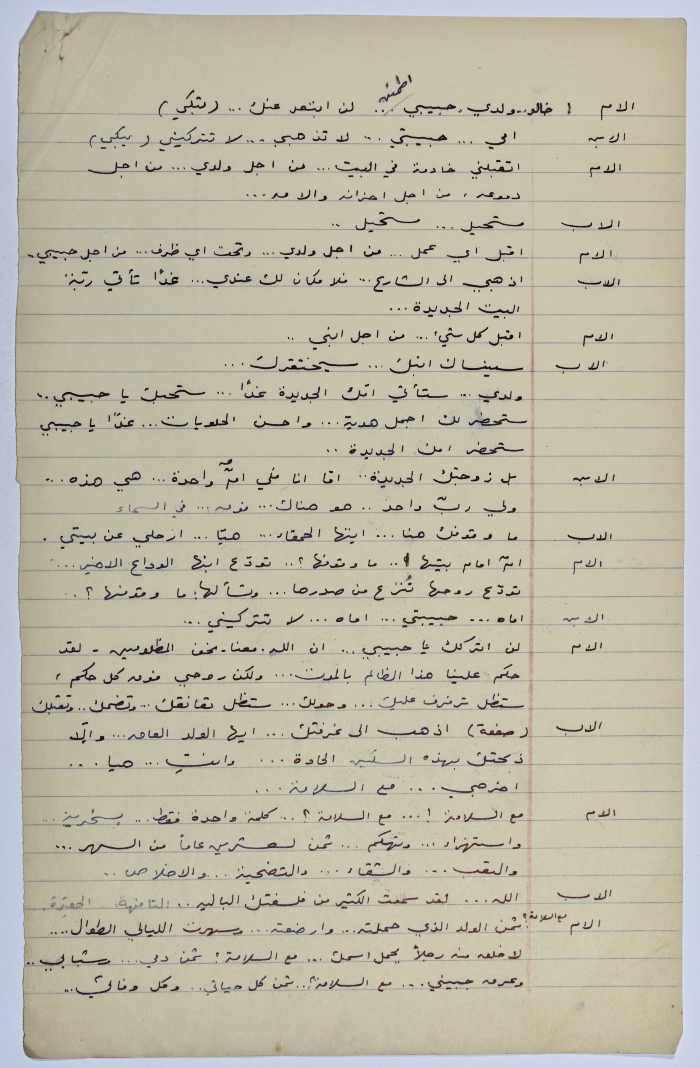 الام ( خالد.. ولدي. حبيبي اطمئن .. لن ابتعد عنك ... (تبكي)
الابن امي ... حبيبتي ... لا تذهبي ... لا تتركيني (يبكي)
الام اتقبلني خادمة في البيت ... من اجل ولدي ... من اجل
دموعه ، من اجل احزانه والامه ...
الاب مستحيل ... مستحيل ..
الام اقبل اي عمل ... من اجل ولدي ... وتحت اي ظرف ... من اجل حبيبي ..
الاب اذهبي الى الشارع ... فلا مكان لك عندي ... غدًا تأتي ربّة
البيت الجديدة ...
الام اقبل كل شيء ... من اجل ابني ..
الاب سينساك ابنك ... سيحتقرك ...
ولدي ... ستأتي امّك الجديدة غدًا ... ستحبك يا حبيبي ..
ستحضر لك اجمل هدية ... واحسن الحلويات ... غدًا يا حبيبي
ستحضر امك الجديدة ..
الابن بل زوجتك الجديدة .. امّا انا فلي امٌّ واحدة ... هي هذه ...
ولي ربّ واحد .. هو هناك ... فوق ... في السماء
الاب ما وقوفك هنا ... ايتها الحمقاء ... هيّا ... ارحلي عن بيتي .
الام امٌّ امام بيتها !.. ما وقوفها ؟.. تودّع ابنها الوداع الاخير ...
تودّع روحها تُنزع من صدرها ... وتسألها: ما وقوفها ؟ ..
الابن اماه ... حبيبتي ... اماه ... لا تتركيني ...
الام لن اتركك يا حبيبي ... ان الله . معنا . نحن المظلومين - لقد
حكم علينا هذا الظالم بالموت ... ولكن روحي فوق كل حكم ،
ستظل ترفرف عليك ... وحولك ... ستظل تعانقك .. وتضمك .. وتقبلك
الاب (صفعة) اذهب الى غرفتك ... ايها الولد العاق ... والّا
ذبحتك بهذه السكين الحادة ... وانتِ ... هيا ...
اخرجي ... مع السلامة ...
الام مع السلامة !... مع السلامة ؟... كلمة واحدة فقط ... بسخرية ..
واستهزاء ... وتهكم ... ثمن لعشرين عاماً من السهر ...
والتعب ... والشقاء ... والتضحية ... والاخلاص ..
الاب الله ... لقد سمعت الكثير من فلسفتك البالية .. التافهة .. الحقيرة.
الام مع السلامة؟ ثمن الولد الذي حملته ... وارضعته ... وسهرت الليالي الطوال ....
لاخلق منه رجلاً يحمل اسمك ... مع السلامة ؟ ثمن دمي ... وشبابي ..
وعرق جبيني ... مع السلامة ؟.. ثمن كل حياتي .. وكل وفائي ..